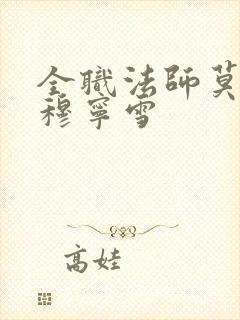 全職法師莫
穆寧雪
高娃